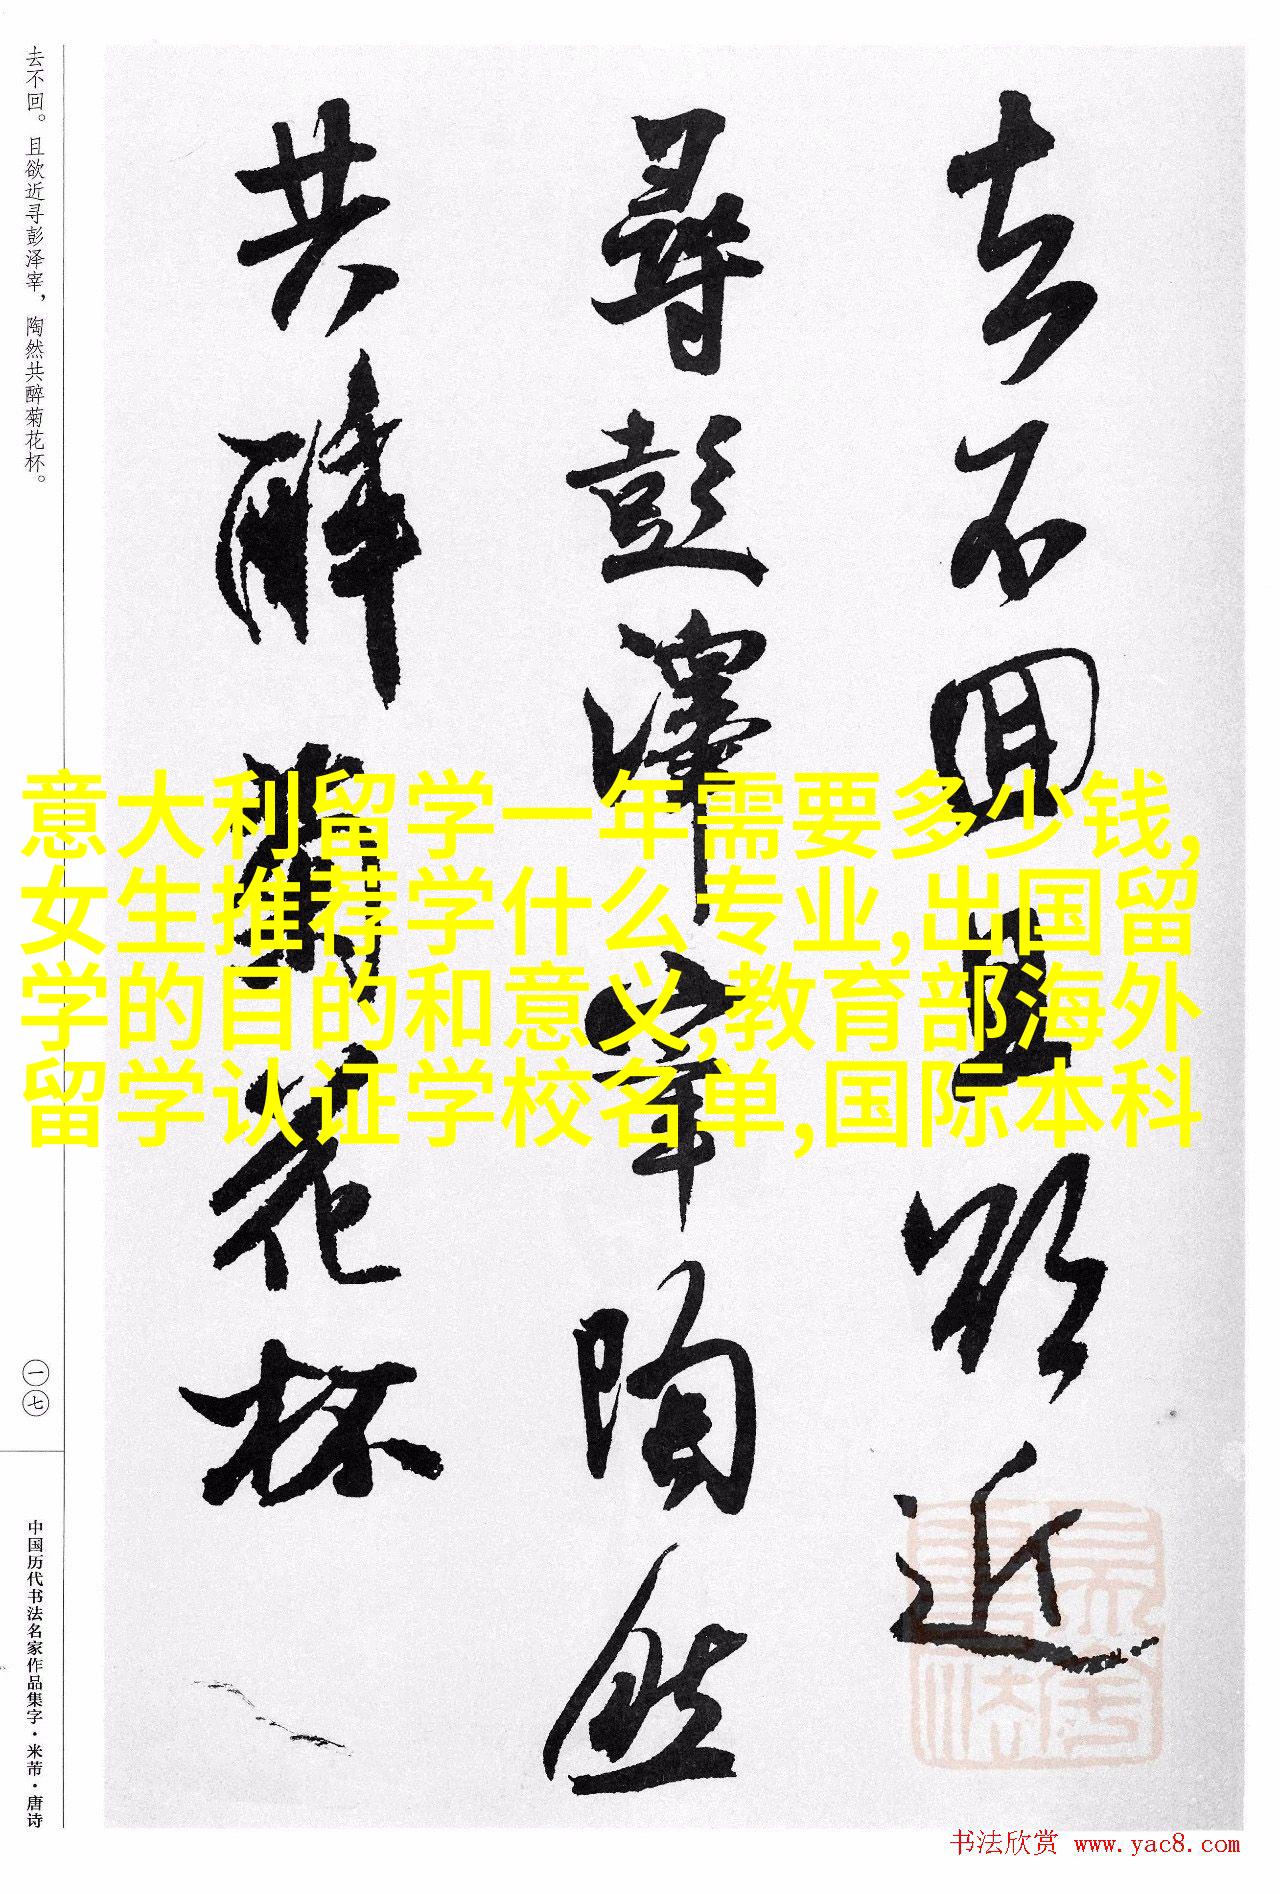 去不回。且欲近寻彭泽宰，陶然共醉菊花杯。
去不回且欲近
尋彭澤宰陶然
共醉菊花杯
意大利留学一年需要多少钱,
女生推荐学什么专业,出国留
学的目的和意义,教育部海外
留学认证学校名单,国际本科
一七
中国历代书法名家作品集字·米芾·唐诗
书法欣赏 www.yac8.com